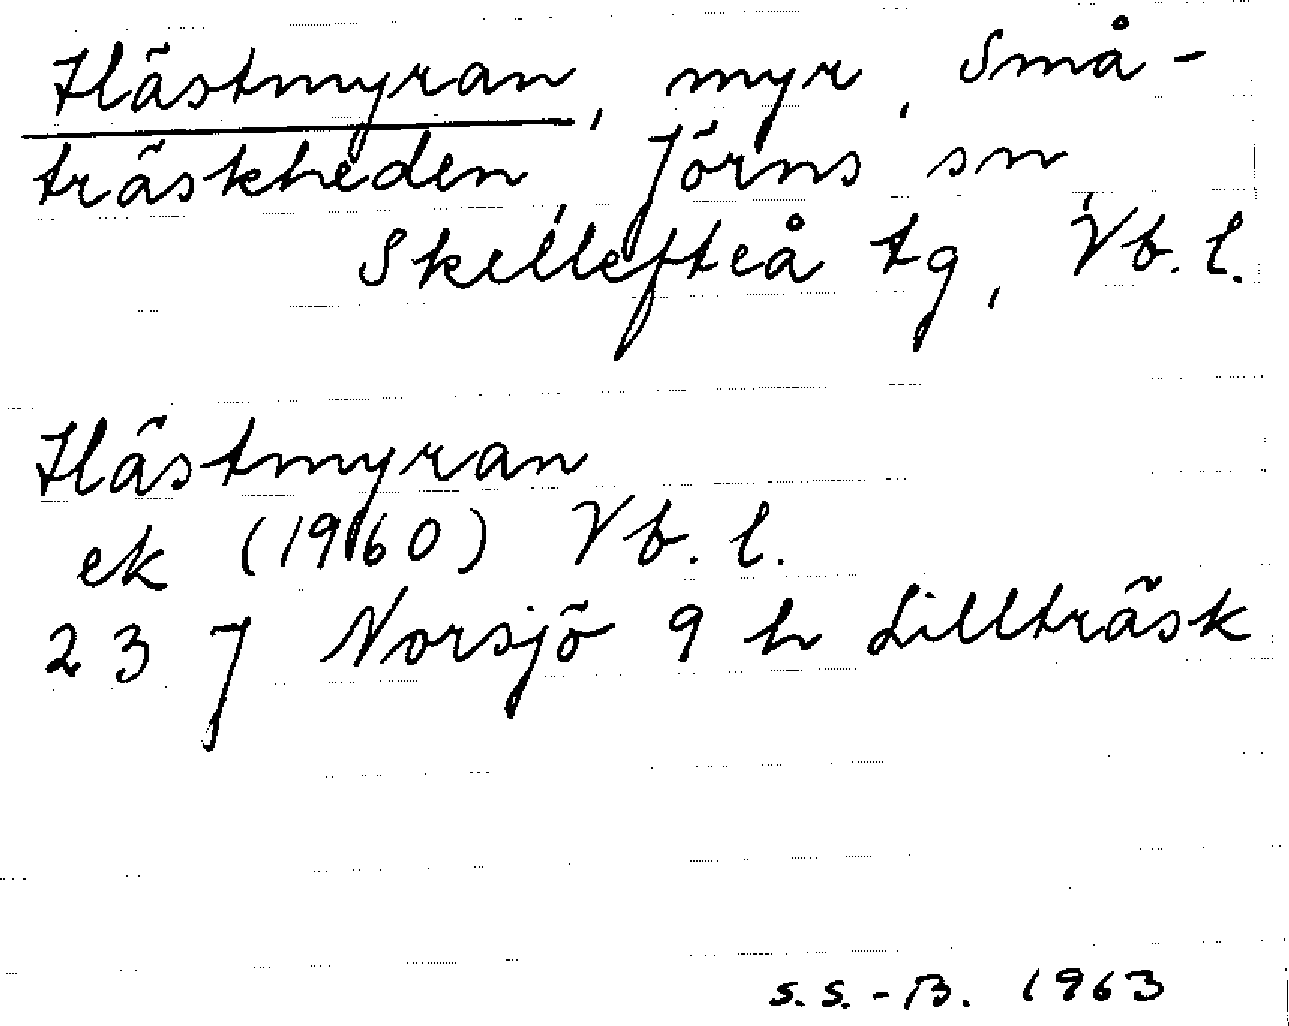 Hästmyran, myr, Små-
träskheden, Jörns sn,
Skellefteå tg, Vb. l.
Hästmyran
ek (1960) Vb. l.
23 J Norsjö 9 h Lillträsk
S.S.-B. 1963